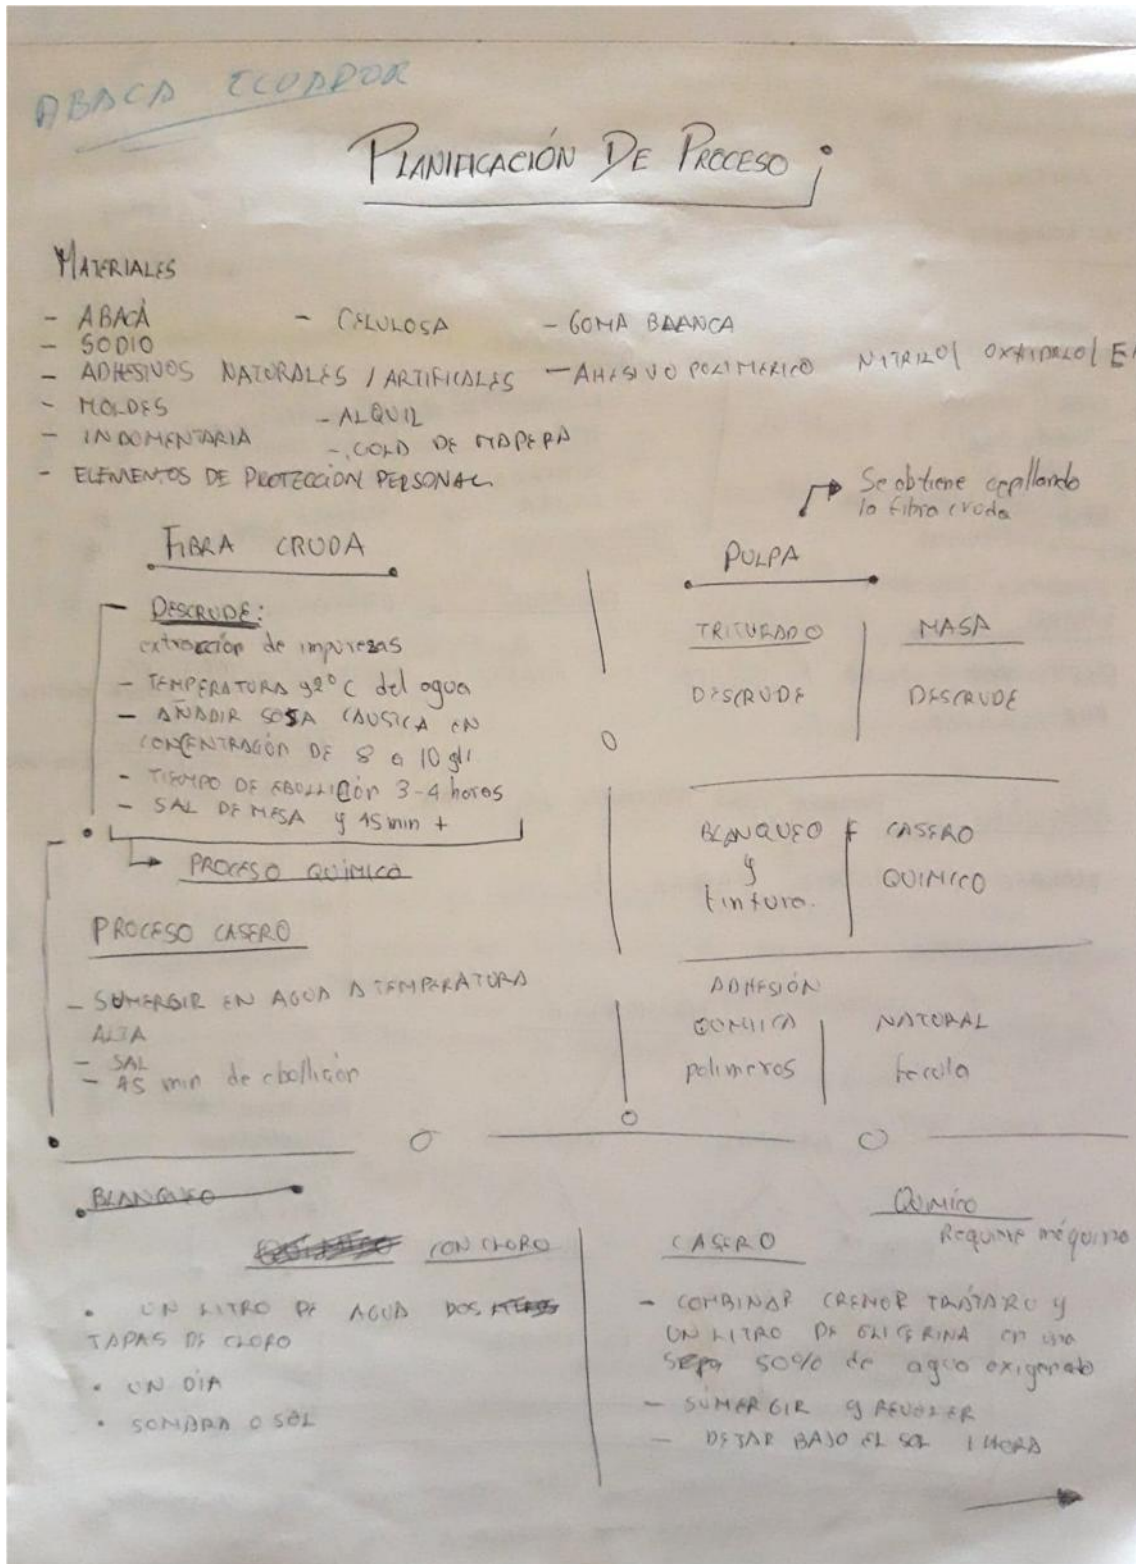 ABACA ECUADOR
PLANIFICACIÓN DE PROCESO
MATERIALES
- ABACÁ
- SODIO
- ADHESIVOS NATURALES / ARTIFICALES
- MOLDES
- INDOMENTARIA
- ELEMENTOS DE PROTECCIÓN PERSONAL
- CELULOSA
- ALQUIL
- COLA DE MADERA
- GOMA BLANCA
- AHESIVO POLIMERICO NITRILO/
Se obtiene cepillando
la fibra cruda
FIBRA CRUDA
- DESCRUDE:
extracción de impurezas
- TEMPERATURA 92°C del agua
- AÑADIR SOSA CAUSICA EN
CONCENTRACIÓN DE 8 a 10 g/l
- TIEMPO DE EBOLLICIÓN 3-4 horas
- SAL DE MESA y 45 min +
PROCESO QUÍMICO
PROCESO CASERO
- SUMERGIR EN AGUA A TEMPERATURA
ALTA
- SAL
- 45 min de ebollición
PULPA
TRITURADO MASA
DESCRUDE DESCRUDE
BLANQUEO CASERO
y QUIMICO
tintura.
ADHESIÓN
QUMICA NATURAL
polimeros fecula
BLANQUEO
CON CLORO
• UN LITRO DE AGUA DOS
TAPAS DE CLORO
• UN DÍA
• SOMBRA O SOL
CASERO
- COMBINAR CREMOR TRÁTARO y
UN LITRO DE GLICERINA en una
50% de agua oxigenada
- SUMERGIR y REVOLER
- DEJAR BAJO EL SOL 1 HORA
QUMÍCO
Requiere máquina